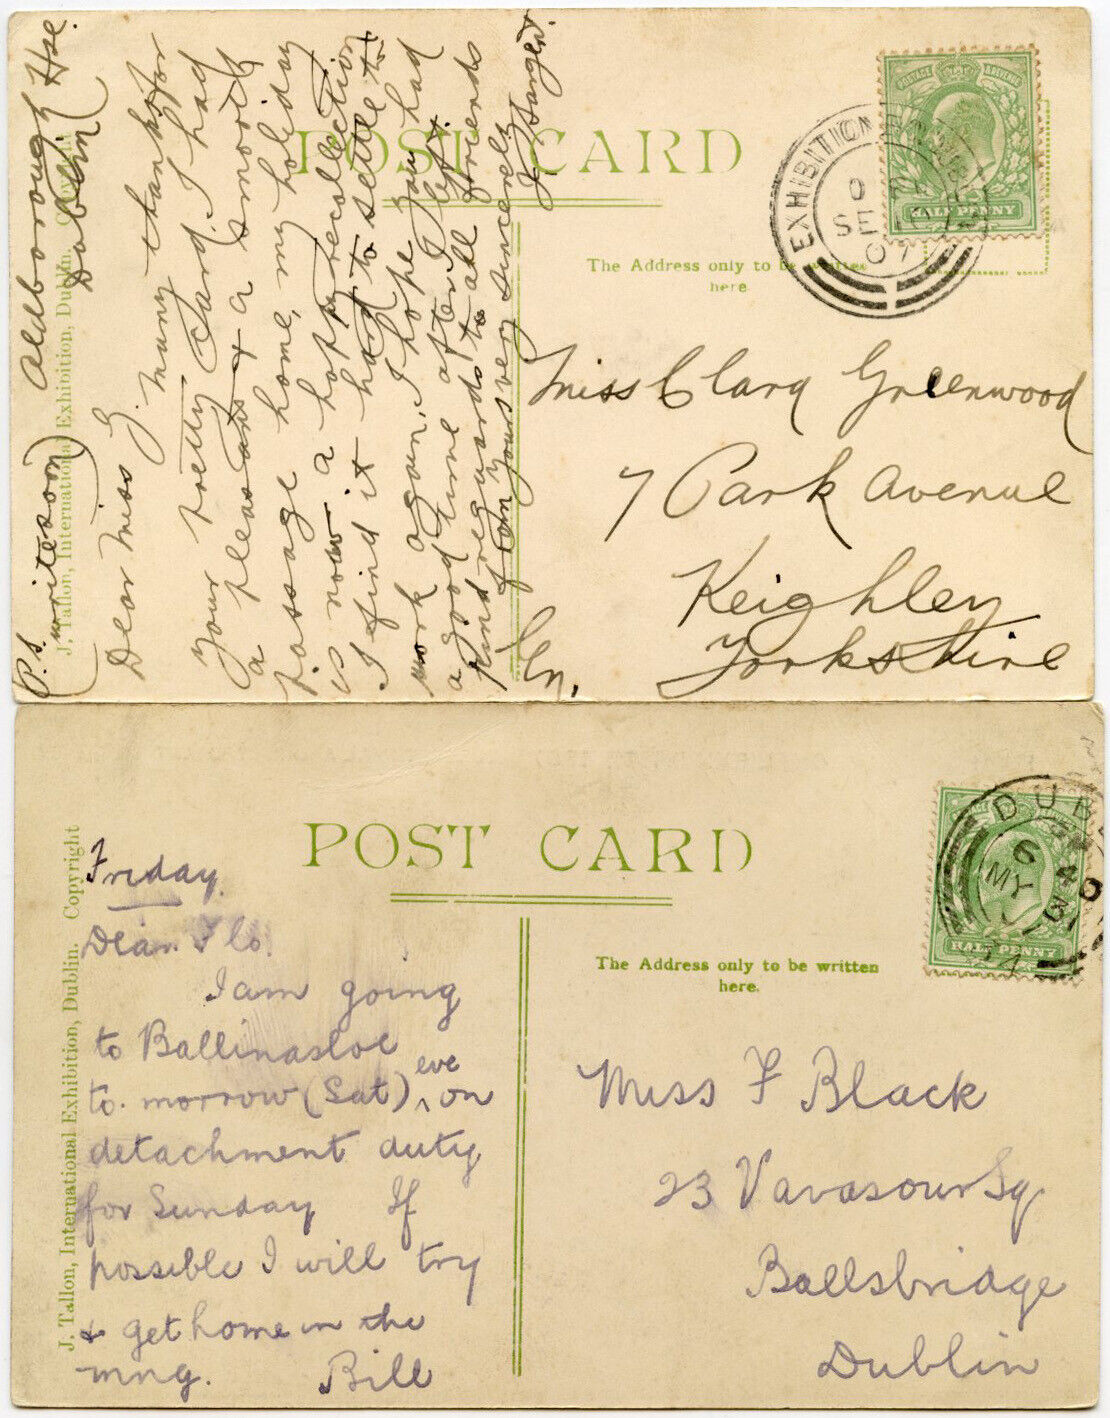 (P.S. write soon) Aldborough Hse.
Dublin
J. Tallon, International Exhibition, Dublin.
Dear Miss G. Many thanks for
your pretty Card. I had
a pleasant & a smooth
passage home, my holiday
is now a happy recollection
I find it hard to settle to
work again, I hope you had
a good time after I left.
Kind regards to all friends
from Yours very sincerely
POST CARD
The Address only to be written
here
EXHIBITION DUBLIN
SE
07
POSTAGE & REVENUE
HALF PENNY
Miss Clara Greenwood
7 Park Avenue
Keighley
Yorkshire
En.
POST CARD
J. Tallon, International Exhibition, Dublin. Copyright
Friday.
Dear Flo.
I am going
to Ballinasloe
to-morrow (Sat) eve on
detachment duty
for Sunday If
possible I will try
& get home in the
mng. Bill
The Address only to be written
here.
DUBL
MY
HALF PENNY
Miss F Black
23 Vavasour Sq
Ballsbridge
Dublin